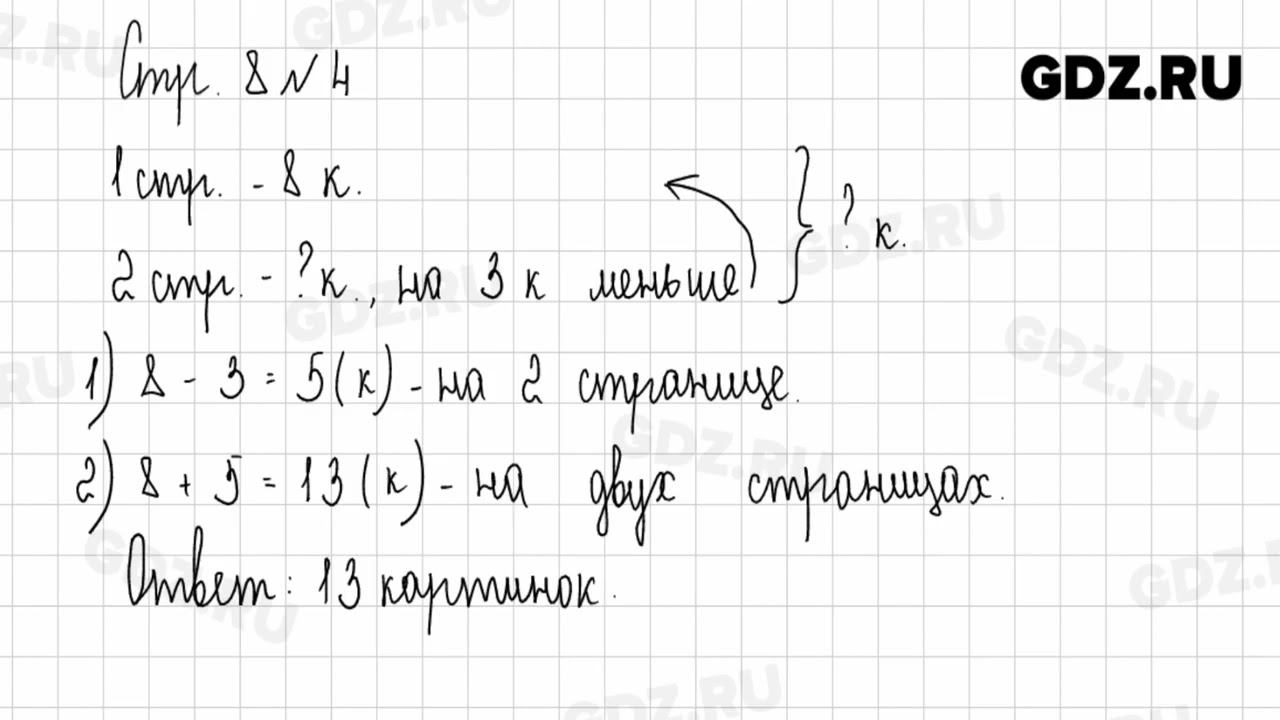 Стр. 8 № 4
GDZ.RU
1 стр. - 8 к.
2 стр. - ? к., на 3 к меньше
? к.
1) 8 - 3 = 5 (к) - на 2 странице.
2) 8 + 5 = 13 (к) - на двух страницах.
Ответ: 13 картинок.